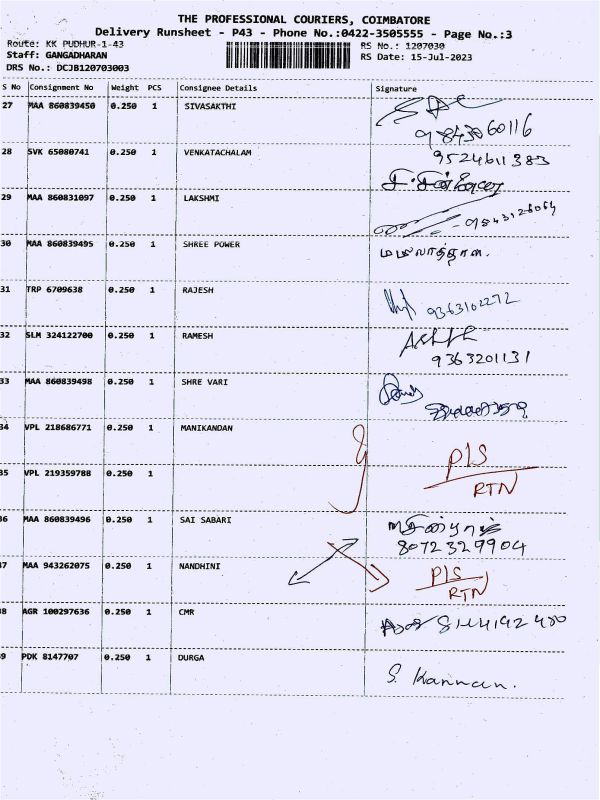 THE PROFESSIONAL COURIERS, COIMBATORE
Delivery Runsheet - P43 - Phone No.:0422-3505555 - Page No.:3
Route: KK PUDHUR-1-43
RS No.: 1207030
Staff: GANGADHARAN
RS Date: 15-Jul-2023
DRS No.: DCJB120703003
S No Consignment No Weight PCS Consignee Details Signature
27 MAA 860839450 0.250 1 SIVASAKTHI
28 SVK 65080741 0.250 1 VENKATACHALAM 9524611383
29 MAA 860831097 0.250 1 LAKSHMI
30 MAA 860839495 0.250 1 SHREE POWER
31 TRP 6709638 0.250 1 RAJESH 9363102272
32 SLM 324122700 0.250 1 RAMESH
9363201131
33 MAA 860839498 0.250 1 SHRE VARI
34 VPL 218686771 0.250 1 MANIKANDAN P/S
35 VPL 219359788 0.250 1 RTN
36 MAA 860839496 0.250 1 SAI SABARI
8072329904
37 MAA 943262075 0.250 1 NANDHINI P/S
RTN
38 AGR 100297636 0.250 1 CMR
39 PDK 8147707 0.250 1 DURGA S. Kannan.